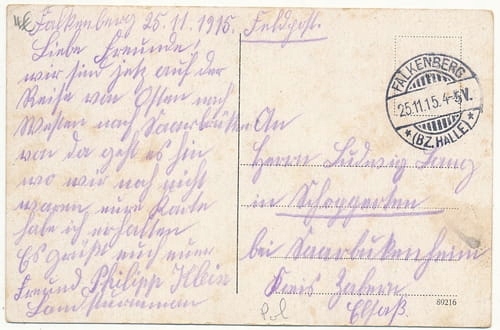 Falkenberg 25.11.1915.
Feldpost.
Liebe Freunde,
wir sind jetz auf der
Reise von Osten nach
Westen nach Saarbrüken
von da geht es hin
wo wir noch nicht
waren eure Karte
habe ich erhalten
Es grüßt euch euer
Freund Philipp Klein
Landsturmman
FALKENBERG
25.11.15. 4-5V.
* (BZ.HALLE) *
An
Herrn Ludwig
in Scheggarten
bei Saarbukenheim
Kreis Zabern
Elsaß.
89216
Pol